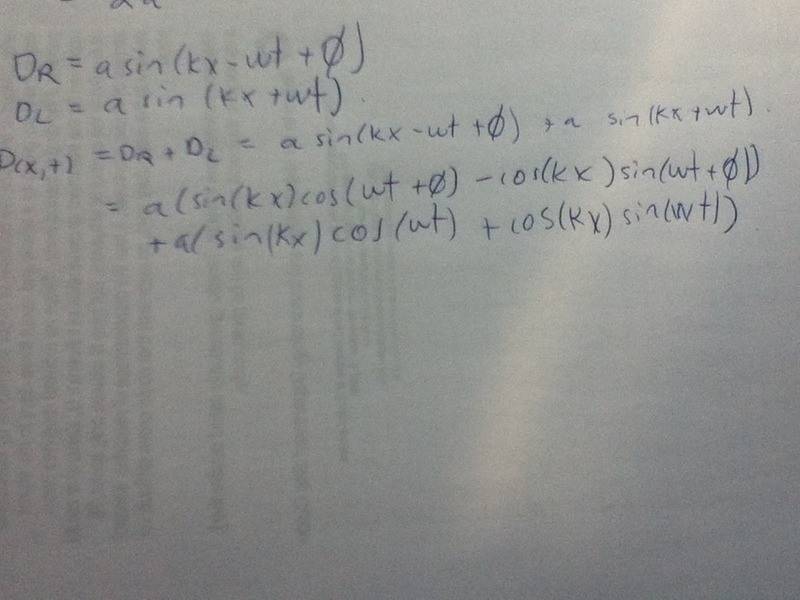 DR = a sin(kx - wt + ø)
DL = a sin (kx + wt).
D(x,t) = DR + DL = a sin(kx - wt + ø) + a sin(kx + wt).
= a(sin(kx)cos(wt + ø) - cos(kx)sin(wt + ø))
+ a(sin(kx)cos(wt) + cos(kx)sin(wt))